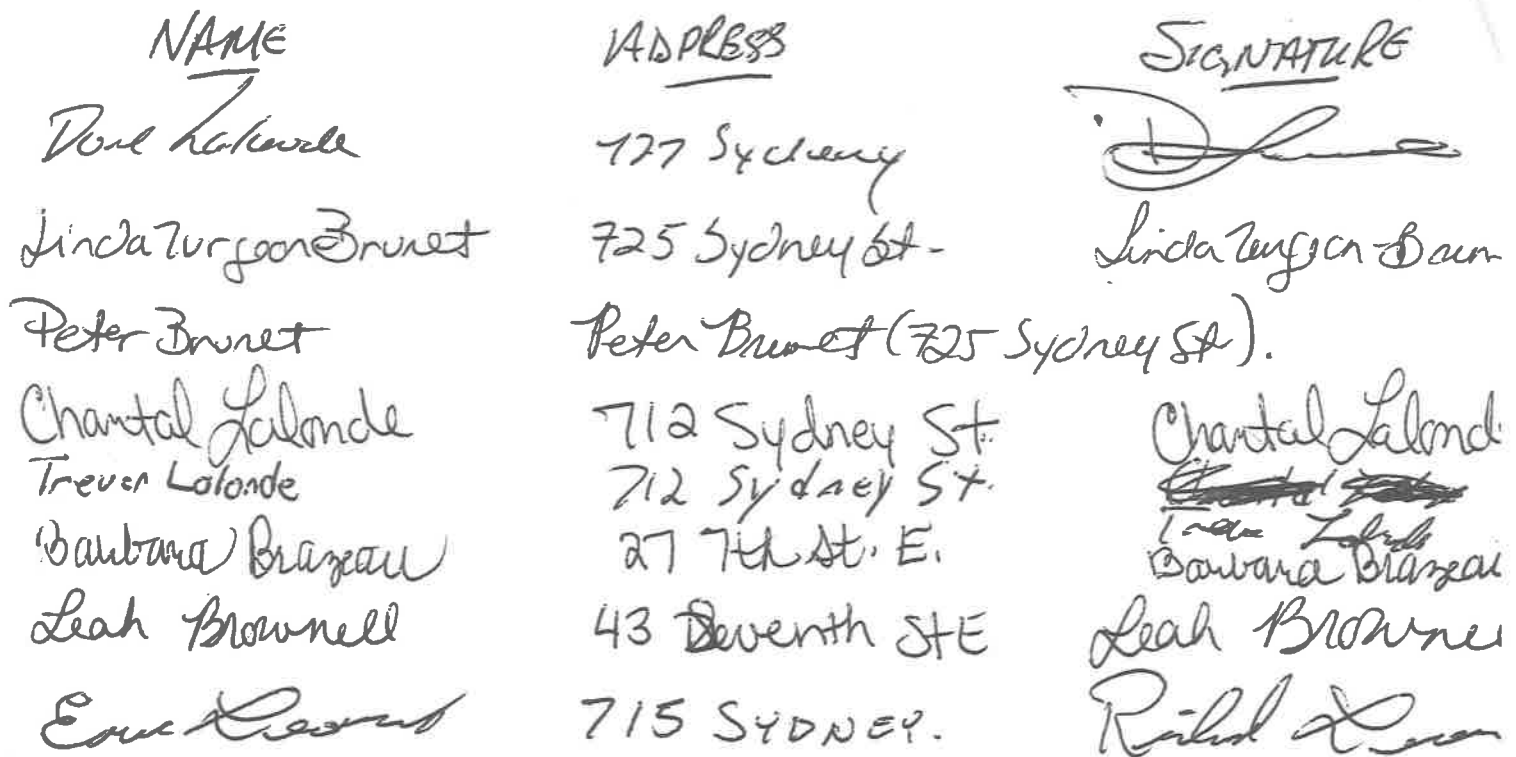 NAME ADDRESS SIGNATURE
727 Sydney
Linda Turgeon Brunet 725 Sydney St. Linda Turgeon-Brun
Peter Brunet Peter Brunet (725 Sydney St).
Chantal Lalonde 712 Sydney St. Chantal Lalond
Trever Lalonde 712 Sydney St.
Barbara Brazeau 27 7th St. E. Barbara Brazeau
Leah Brownell 43 Seventh St E Leah Browne
715 SYDNEY. Richard